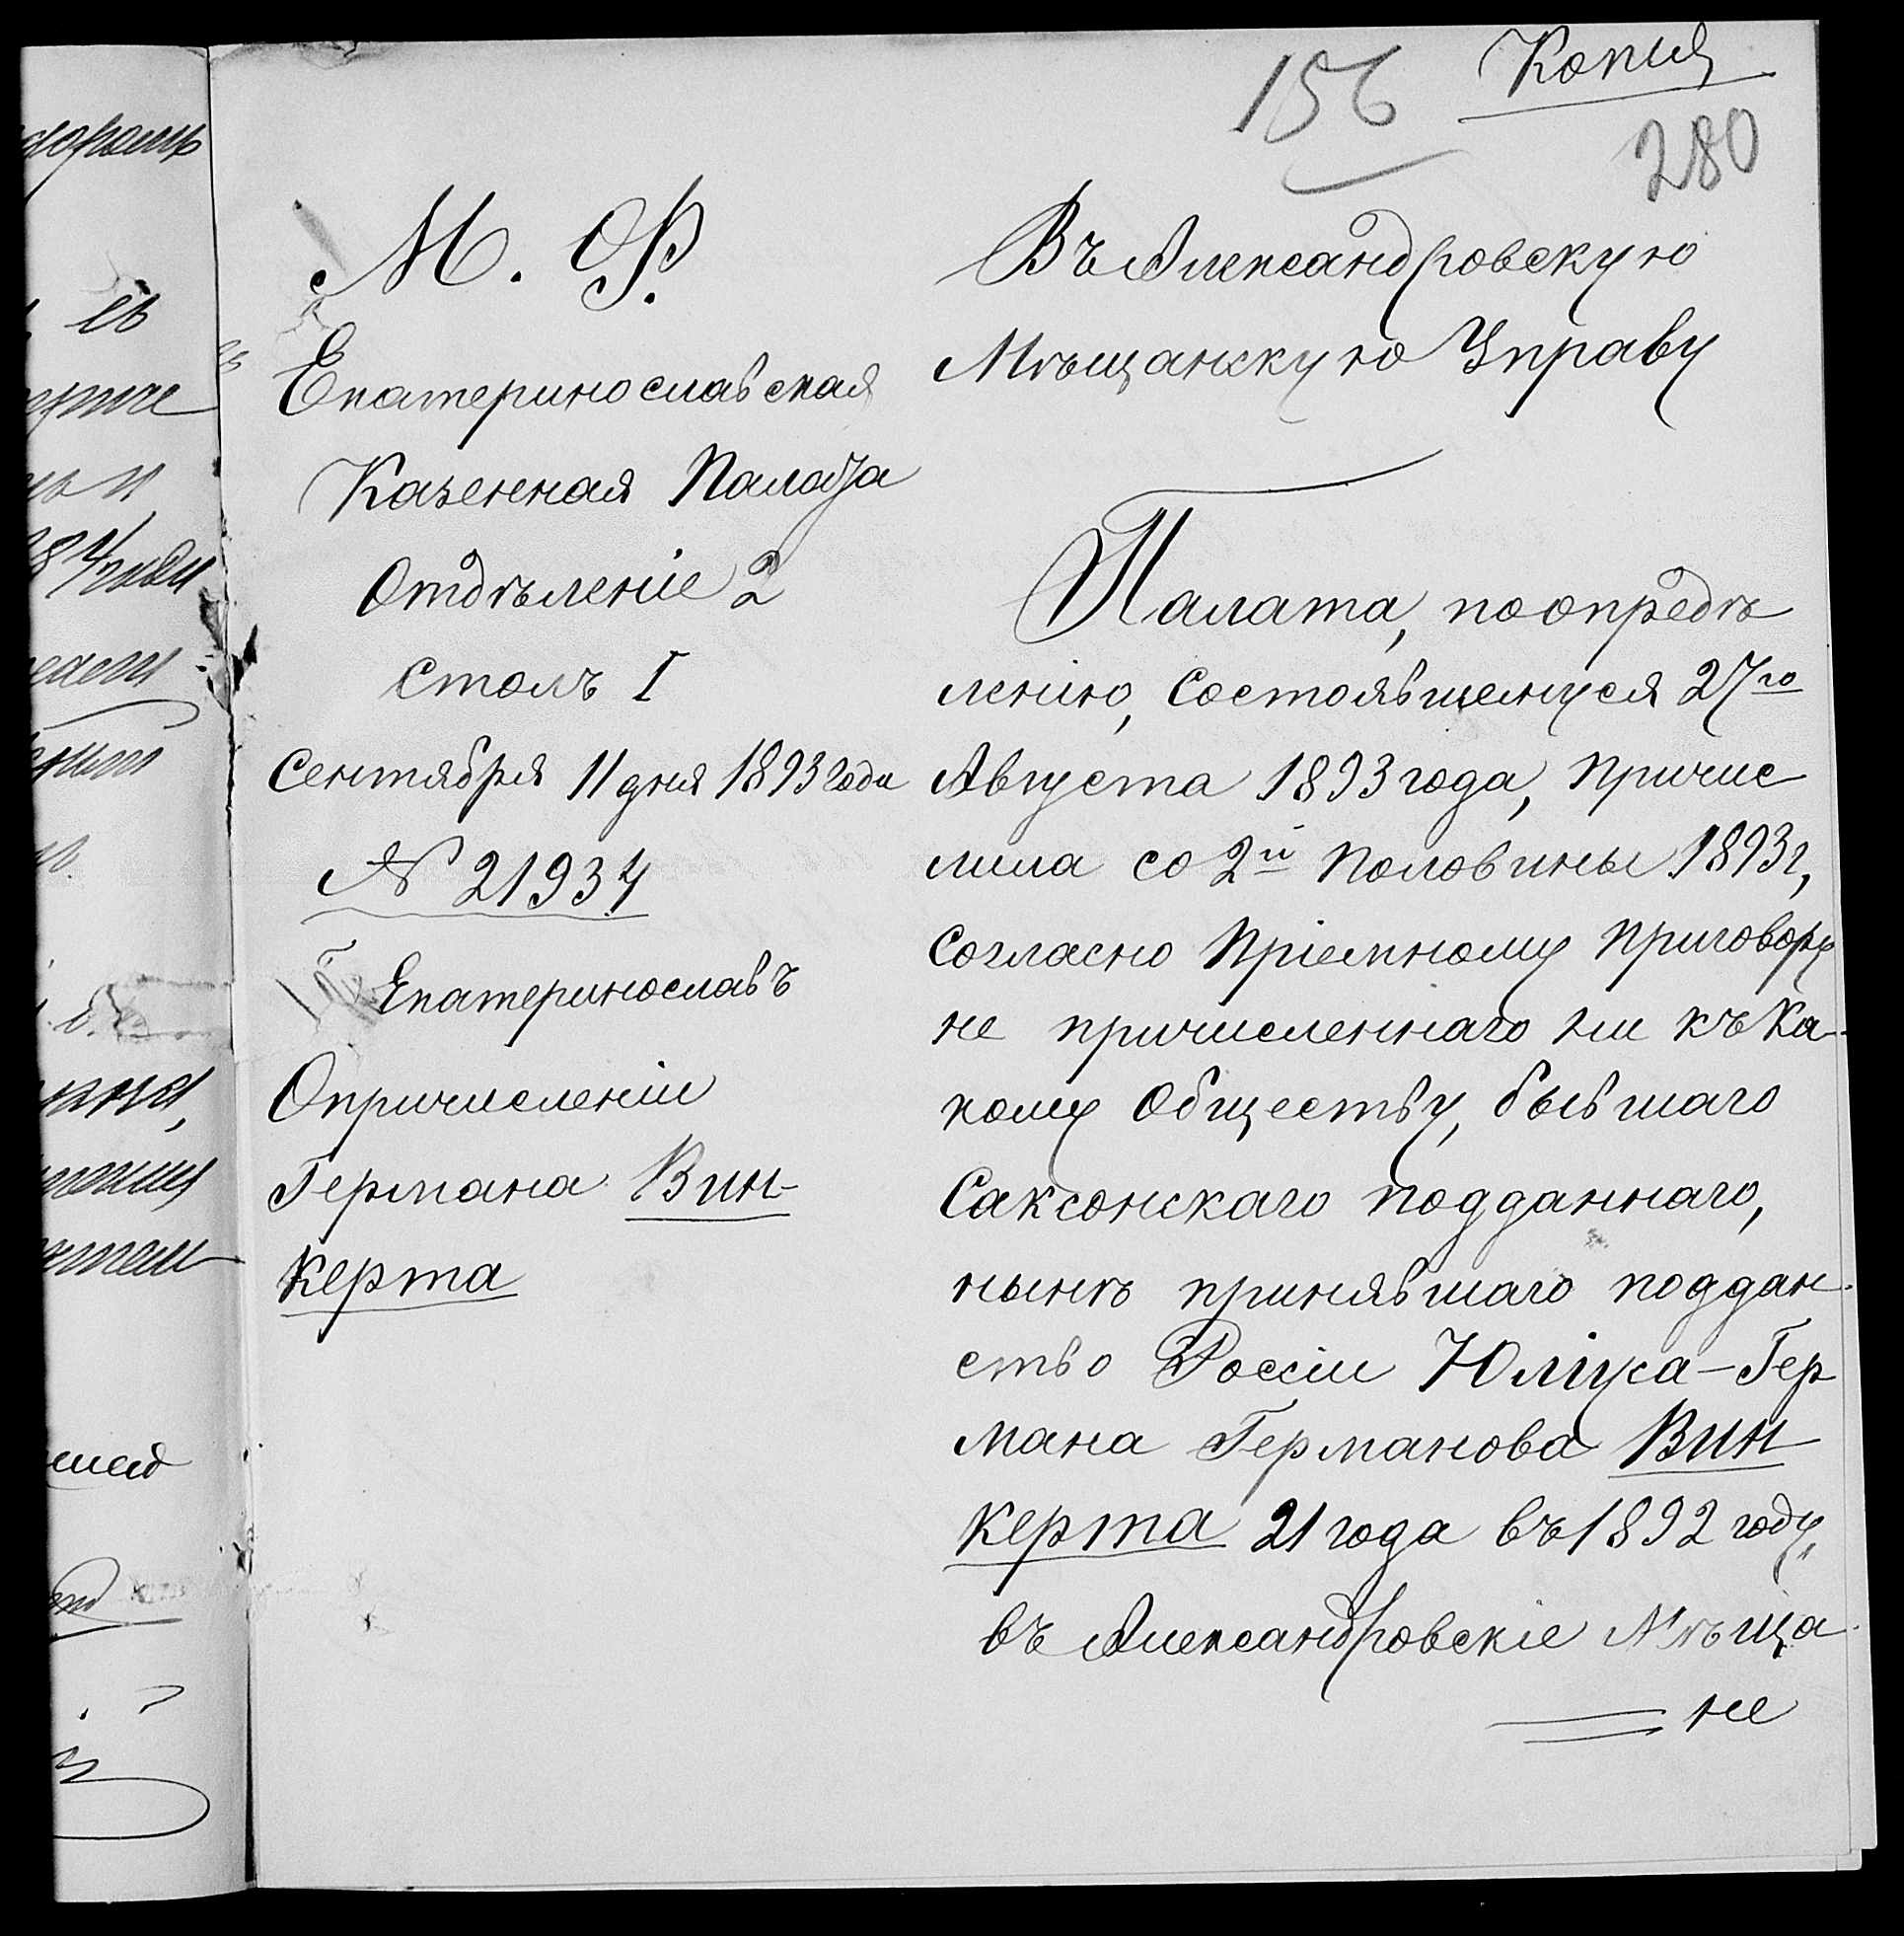 156 Копия
280
М. Ф.
Екатеринославская
Казенная Палата
Отдѣленіе 2
Столъ I
Сентября 11 дня 1893 года
№ 21934
Екатеринославъ
О причисленіи
Германа Вин-
керта
Въ Александровскую
Мѣщанскую Управу
Палата, по опредѣ
ленію, состоявшемуся 27го
Августа 1893 года, причис
лила со 2й половины 1893 г,
согласно пріемному приговору
не причисленнаго ни къ ка-
кому обществу, бывшаго
Саксонскаго подданнаго,
нынѣ принявшаго поддан-
ство Россіи Юліуса-Гер
мана Германова Вин
керта 21 года въ 1892 году,
въ Александровскіе Мѣща-
не